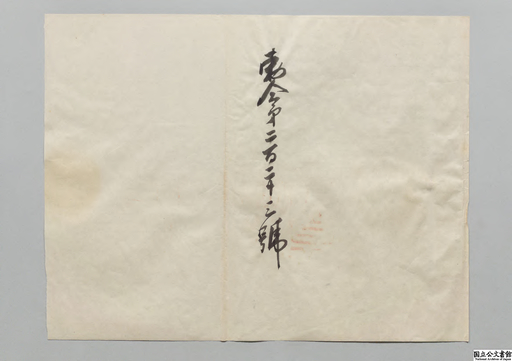 勅令第二百二十三號
国立公文書館
National Archives of Japan